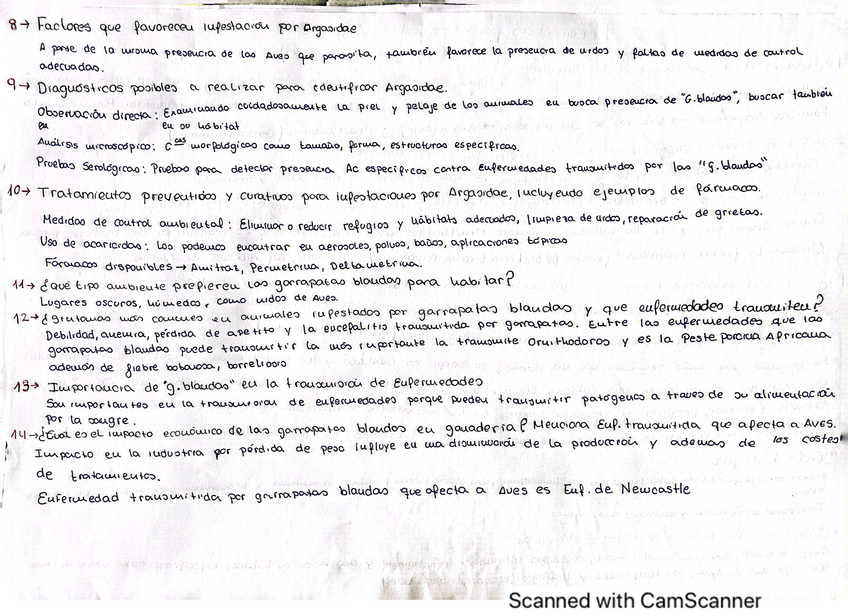 8→ Factores que favorecen infestación por Argasidae
A parte de la misma presencia de las Aves que parasita, también favorece la presencia de nidos y faltas de medidas de control
adecuadas.
9→ Diagnósticos posibles a realizar para identificar Argasidae.
Observación directa: Examinando cuidadosamente la piel y pelaje de los animales en busca presencia de "G.blandas", buscar también
en en su hábitat
Análisis microscópico: Cas morfológicas como tamaño, forma, estructuras específicas.
Pruebas Serológicas: Pruebas para detectar presencia Ac específicos contra Enfermedades transmitidas por las "g.blandas"
10→ Tratamientos preventivos y curativos para infestaciones por Argasidae, incluyendo ejemplos de fármacos.
Medidas de control ambiental: Eliminar o reducir refugios y hábitats adecuados, limpieza de nidos, reparación de grietas.
Uso de acaricidas: Los podemos encontrar en aerosoles, polvos, baños, aplicaciones tópicas
Fármacos disponibles → Amitraz, Permetrina, Deltametrina.
11→ ¿Qué tipo ambiente prefieren las garrapatas blandas para habitar?
Lugares oscuros, húmedos, como nidos de Aves.
12→ ¿Síntomas más comunes en animales infestados por garrapatas blandas y que enfermedades transmiten?
Debilidad, anemia, pérdida de apetito y la encefalitis transmitida por garrapatas. Entre las enfermedades que las
garrapatas blandas puede transmitir la más importante la transmite Ornithodoros y es la Peste porcina Africana
además de fiebre botonosa, borreliosis
13→ Importancia de "g.blandas" en la transmisión de Enfermedades
Son importantes en la transmisión de enfermedades porque pueden transmitir patógenos a traves de su alimentación
por la sangre.
14→ ¿Cuál es el impacto económico de las garrapatas blandas en ganadería? Menciona Enf. transmitida que afecta a Aves.
Impacto en la industria por pérdida de peso influye en una disminución de la producción y ademas de los costes
de tratamientos.
Enfermedad transmitida por garrapatas blandas que afecta a Aves es Enf. de Newcastle
Scanned with CamScanner